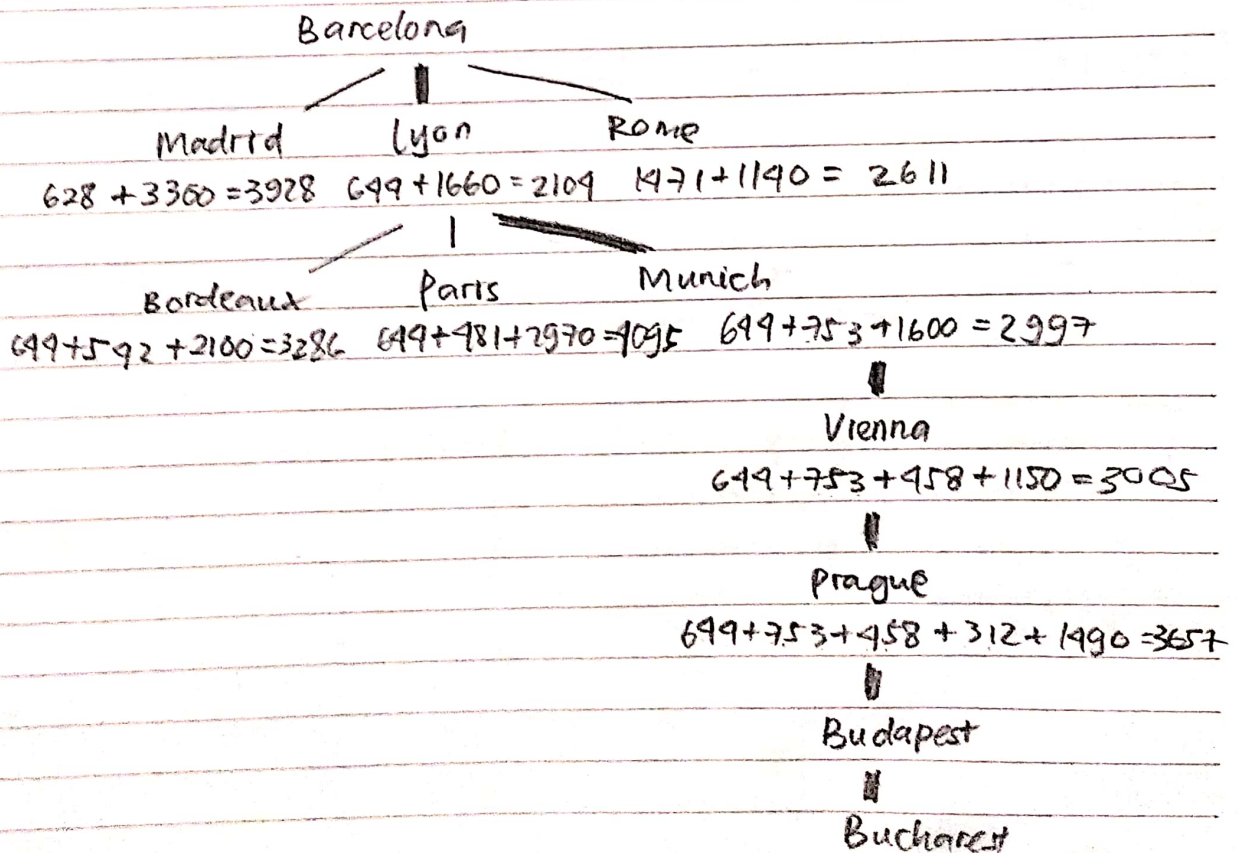 Barcelona
Madrid Lyon Rome
628 + 3300 = 3928 644 + 1660 = 2104 1471 + 1140 = 2611
Bordeaux Paris Munich
644 + 542 + 2100 = 3286 644 + 481 + 2970 = 4095 644 + 753 + 1600 = 2997
Vienna
644 + 753 + 458 + 1150 = 3005
Prague
644 + 753 + 458 + 312 + 1490 = 3657
Budapest
Bucharest